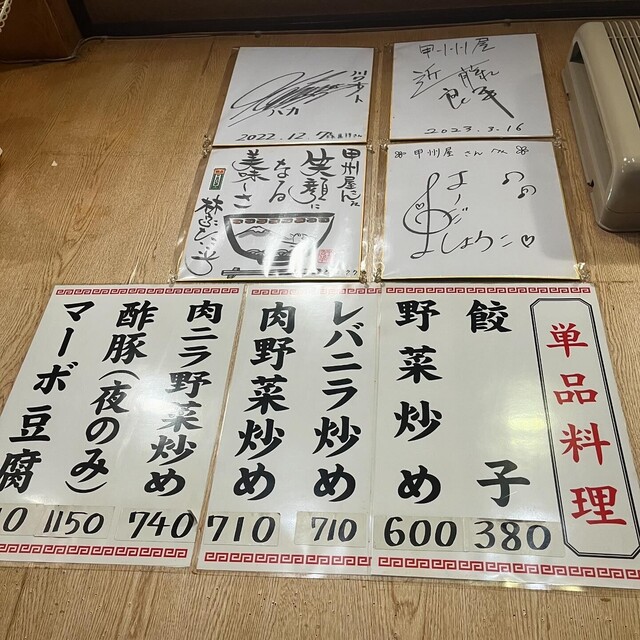 甲州屋
2023.3.16
2022.12.7
甲州屋さん江
笑顔に
なる
美味しさ
甲州屋さん江
よーじ
しょうこ
単品料理
餃子
380
野菜炒め
600
レバニラ炒め
710
肉野菜炒め
710
肉ニラ野菜炒め
740
酢豚(夜のみ)
1150
マーボ豆腐